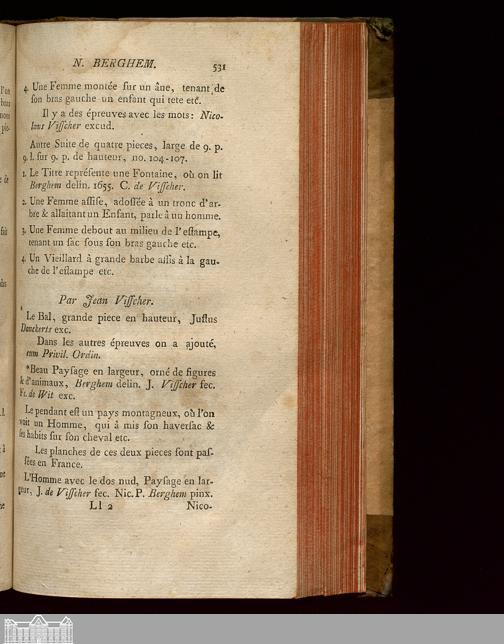 N. BERGHEM. 531
4. Une Femme montée ſur un âne, tenant de
ſon bras gauche un enfant qui tete etc.
Il y a des épreuves avec les mots: Nico-
laus Viſſcher excud.
Autre Suite de quatre pieces, large de 9. p.
9. l. ſur 9. p. de hauteur, no. 104-107.
1. Le Titre repréſente une Fontaine, où on lit
Berghem delin. 1655. C. de Viſſcher.
2. Une Femme aſſiſe, adoſſée à un tronc d'ar-
bre & allaitant un Enfant, parle à un homme.
3. Une Femme debout au milieu de l'eſtampe,
tenant un ſac ſous ſon bras gauche etc.
4. Un Vieillard à grande barbe aſſis à la gau-
che de l'eſtampe etc.
Par Jean Viſſcher.
Le Bal, grande piece en hauteur, Juſtus
Danckerts exc.
Dans les autres épreuves on a ajouté,
cum Privil. Ordin.
*Beau Payſage en largeur, orné de figures
& d'animaux, Berghem delin. J. Viſſcher fec.
Fr. de Wit exc.
Le pendant eſt un pays montagneux, où l'on
voit un Homme, qui â mis ſon haverſac &
ſes habits ſur ſon cheval etc.
Les planches de ces deux pieces ſont paſ-
ſées en France.
L'Homme avec le dos nud, Payſage en lar-
geur, J. de Viſſcher fec. Nic. P. Berghem pinx.
Ll 2 Nico-